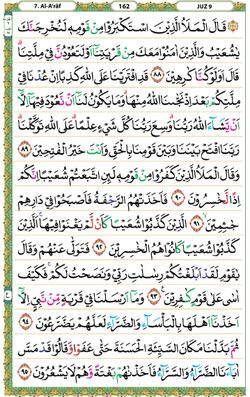 7. Al-A'rāf 162 JUZ 9
قَالَ الْمَلَأُ الَّذِينَ اسْتَكْبَرُوا مِنْ قَوْمِهِ لَنُخْرِجَنَّكَ
يٰشُعَيْبُ وَالَّذِينَ اٰمَنُوا مَعَكَ مِنْ قَرْيَتِنَا أَوْ لَتَعُودُنَّ فِي مِلَّتِنَا
قَالَ أَوَلَوْ كُنَّا كٰرِهِينَ ٨٨ قَدِ افْتَرَيْنَا عَلَى اللّٰهِ كَذِبًا إِنْ عُدْنَا فِي
مِلَّتِكُمْ بَعْدَ إِذْ نَجّٰىنَا اللّٰهُ مِنْهَا وَمَا يَكُونُ لَنَا أَنْ نَعُودَ فِيهَا إِلَّا
أَنْ يَشَاءَ اللّٰهُ رَبُّنَا وَسِعَ رَبُّنَا كُلَّ شَيْءٍ عِلْمًا عَلَى اللّٰهِ تَوَكَّلْنَا
رَبَّنَا افْتَحْ بَيْنَنَا وَبَيْنَ قَوْمِنَا بِالْحَقِّ وَأَنْتَ خَيْرُ الْفٰتِحِينَ ٨٩
وَقَالَ الْمَلَأُ الَّذِينَ كَفَرُوا مِنْ قَوْمِهِ لَئِنِ اتَّبَعْتُمْ شُعَيْبًا إِنَّكُمْ
إِذًا لَخٰسِرُونَ ٩٠ فَأَخَذَتْهُمُ الرَّجْفَةُ فَأَصْبَحُوا فِي دَارِهِمْ
جٰثِمِينَ ٩١ الَّذِينَ كَذَّبُوا شُعَيْبًا كَأَنْ لَمْ يَغْنَوْا فِيهَا الَّذِينَ
كَذَّبُوا شُعَيْبًا كَانُوا هُمُ الْخٰسِرِينَ ٩٢ فَتَوَلّٰى عَنْهُمْ وَقَالَ
يٰقَوْمِ لَقَدْ أَبْلَغْتُكُمْ رِسٰلٰتِ رَبِّي وَنَصَحْتُ لَكُمْ فَكَيْفَ
اٰسٰى عَلٰى قَوْمٍ كٰفِرِينَ ٩٣ وَمَا أَرْسَلْنَا فِي قَرْيَةٍ مِنْ نَبِيٍّ إِلَّا
أَخَذْنَا أَهْلَهَا بِالْبَأْسَاءِ وَالضَّرَّاءِ لَعَلَّهُمْ يَضَّرَّعُونَ ٩٤
ثُمَّ بَدَّلْنَا مَكَانَ السَّيِّئَةِ الْحَسَنَةَ حَتّٰى عَفَوْا وَقَالُوا قَدْ مَسَّ
اٰبَاءَنَا الضَّرَّاءُ وَالسَّرَّاءُ فَأَخَذْنٰهُمْ بَغْتَةً وَهُمْ لَا يَشْعُرُونَ ٩٥